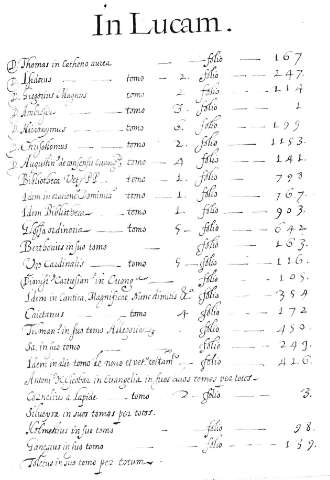 In Lucam.
D. Thomas in Cathena aurea — folio — 167
D. Isidorus — tomo — 2. folio — 247.
D. Gregorius Magnus tomo 2 — folio — 114
D. Ambrosius — tomo 3. folio — 1
D. Hieronymus — tomo 6. folio — 199
D. Chrisostomus — tomo 2 — folio — 1153.
D. Augustin. de consensu Euang. tomo 4 — folio — 141.
Bibliotheca Vet. PP. — tomo 1. — folio — 798
Idem in oratione Dominica tomo 1. — folio — 767.
Idem Bibliotheca — tomo 1. — folio — 903.
Glossa ordinaria — tomo 5 — folio — 642
in suo tomo — folio — 163.
Vgo Cardinalis — tomo 5 — folio — 116.
Cartusian. in Euang. — folio — 105.
Idem in Cantica, Magnificat Nunc dimitis &c. folio — 354
Caietanus — tomo 4 folio — 172
in suo tomo — folio — 450.
Sa, in suo tomo — folio — 249.
Idem in tomo de nouo et vet. testam. folio — 426.
in Euangelia in suos tomos per totos.
Cornelius a Lapide — tomo 2 — folio — 3.
Silueyra in suos tomos per totos.
in suo tomo — folio — 98.
in suo tomo — folio — 159.
Toletus in suo tomo per totum.